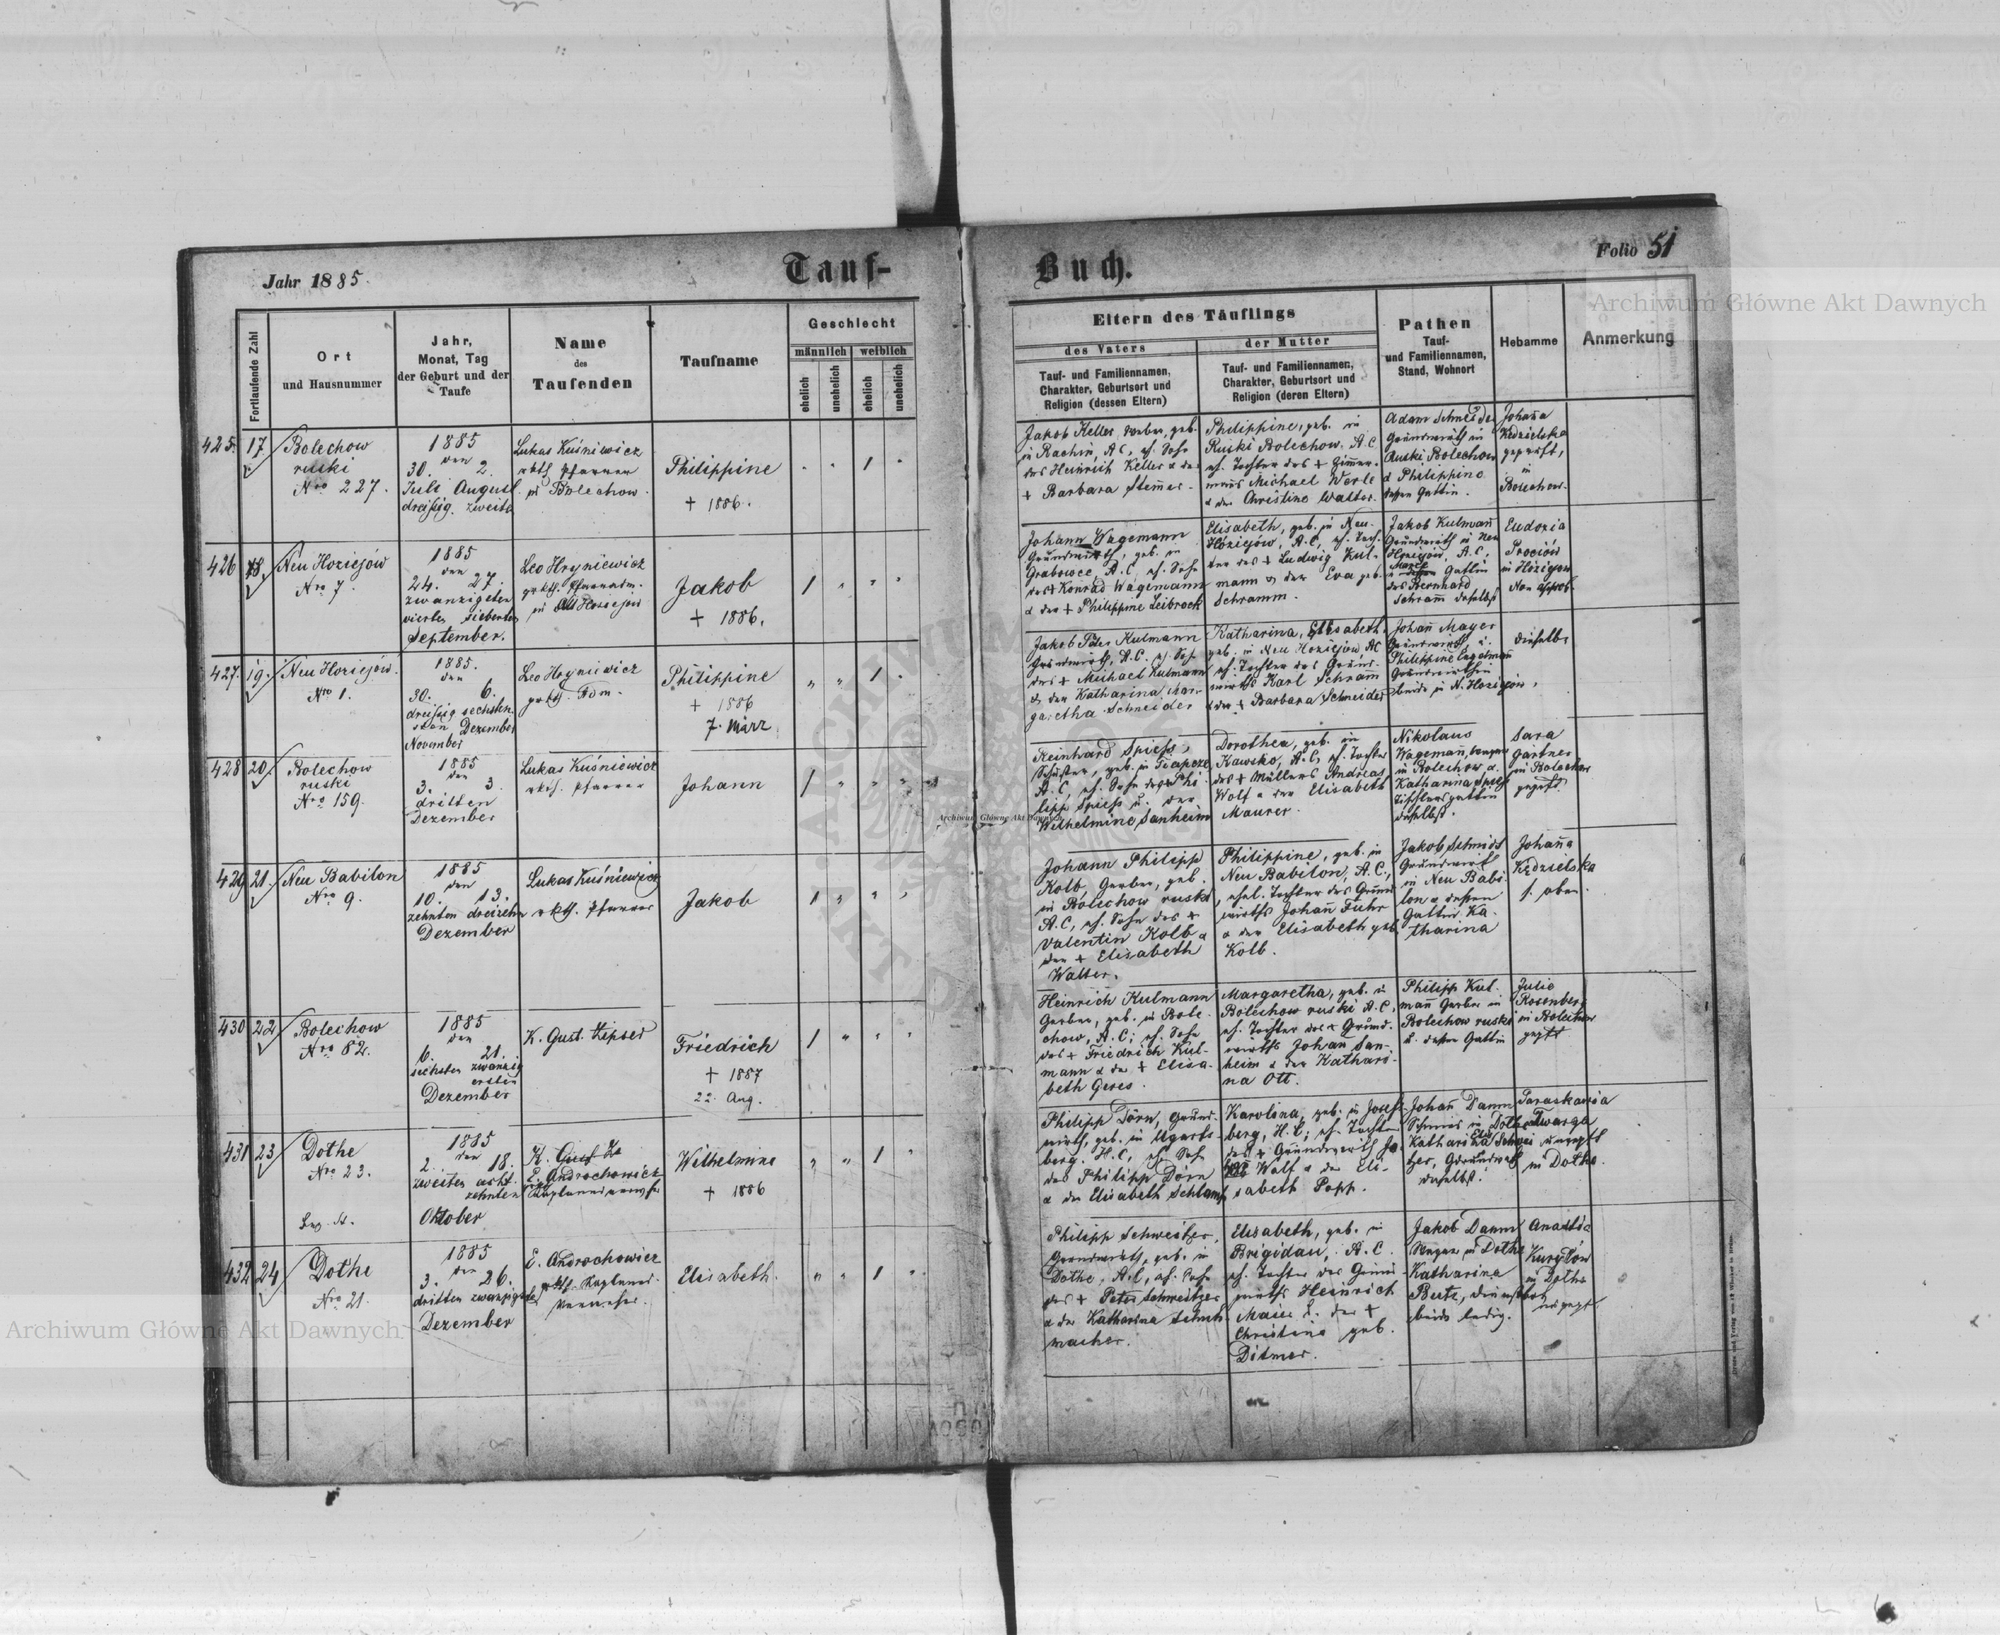 Jahr 1885.
Tauf-
Buch.
Folio 51
Archiwum Główne Akt Dawnych
Fortlaufende Zahl
Ort
und Hausnummer
Jahr,
Monat, Tag
der Geburt und der
Taufe
Name
des
Taufenden
Taufname
Geschlecht
männlich
weiblich
ehelich
unehelich
ehelich
unehelich
Eltern des Täuflings
des Vaters
Tauf- und Familiennamen,
Charakter, Geburtsort und
Religion (dessen Eltern)
der Mutter
Tauf- und Familiennamen,
Charakter, Geburtsort und
Religion (deren Eltern)
Pathen
Tauf-
und Familiennamen,
Stand, Wohnort
Hebamme
Anmerkung
425.
17
Bolechow
ruski
Nro 227.
1885
den
30. 2.
Juli August
dreißig. zweite
Lukas Kuśniewicz
rkth Pfarrer
in Bolechow.
Philippine
+ 1886.
1
Jakob Keller, Weber, geb.
in Rachin, AC, eh. Sohn
des Heinrich Keller & der
+ Barbara Stemer.
Philippine, geb. in
Ruski Bolechow. A.C.
eh. Tochter des + Zimmer-
manns Michael Worle
& der Christine Walter.
Adam Schneider
Grundwirth in
Ruski Bolechow
& Philippine
dessen Gattin.
Johana
Kedzielska
geprüft,
in
Bolechow.
426
18
Neu Hoziejów
Nro 7.
1885
den
24. 27.
zwanzigsten
vierten siebenten
September.
Leo Hryniewicz
grkth. Pfarradm.
in Alt Hoziejow
Jakob
+ 1886.
1
Johann Wagemann
Grundwirth, geb. in
Grabowce, A.C, eh. Sohn
des + Konrad Wagemann
& der + Philippine Leibrock
Elisabeth, geb. in Neu-
Hoziejów, A.C, eh. Toch.
ter des + Ludwig Kul-
mann & der Eva geb.
Schramm.
Jakob Kulmann
Grundwirth in Neu
Hoziejow, A.C,
Gattin
des Bernhard
Schram daselbst
Eudozia
Prociów
in Hoziejow
Non approb.
427.
19.
Neu Hoziejów.
Nro 1.
1885.
den
30. 6.
dreißig sechsten
sten Dezember
November
Leo Hryniewicz
grkth. Adm.
Philippine
+ 1886
7. März
1
Jakob Peter Kulmann
Grundwirth, A.C. eh. Sohn
des + Michael Kulmann
& der Katharina Mar-
garetha Schneider
Katharina, Elisabeth,
geb. in Neu Hoziejow AC
eh. Tochter des Grund-
wirths Karl Schram
& der + Barbara Schneider
Johann Mayer
Grundwirth u.
Philippine Engelman
Grundwirthin
beide in N. Hoziejow.
dieselbe
428
20.
Bolechow
ruski
Nro 159.
1885
den
3. 3.
dritten
Dezember
Lukas Kuśniewicz
rkth. Pfarrer
Johann
1
Reinhard Spiess,
Schuster, geb. in Tiapcze
A.C, eh. Sohn des Phi
lipp Spiess u. der
Wilhelmine Sanheim
Archiwum Główne Akt Dawnych
Dorothea, geb. in
Kawsko, A.C, eh. Tochter
des + Müllers Andreas
Wolf & der Elisabeth
Maurer.
Nikolaus
Wagemann,
in Bolechow &
Katharina Spiess
Tischlersgattin
daselbst.
Sara
Gärtner
in Bolechow
geprft.
429
21.
Neu Babilon
Nro 9.
1885
den
10. 13.
zehnten dreizehn
Dezember
Lukas Kuśniewicz
rkth. Pfarrer
Jakob
1
Johann Philipp
Kolb, Gerber, geb.
in Bolechow ruski
A.C, eh. Sohn des +
Valentin Kolb &
der + Elisabeth
Walter.
Philippine, geb. in
Neu Babilon, A.C,
ehel. Tochter des Grund
wirths Johann Fuhr
& der Elisabeth geb.
Kolb.
Jakob Schmidt
Grundwirth
in Neu Babi
lon & dessen
Gattin Ka-
tharina
Johana
Kędzielska
s. oben.
430
22
Bolechow
Nro 82.
1885
den
6. 21.
sechsten zwanzig
ersten
Dezember
K. Gust. Lipser
Friedrich
+ 1887
22. Aug.
1
Heinrich Kulmann
Gerber, geb. in Bole-
chow, A.C; eh. Sohn
des + Friedrich Kul-
mann & der + Elisa-
beth Geres.
Margaretha, geb. in
Bolechow ruski A.C,
eh. Tochter des + Grund-
wirths Johann San-
heim & der Kathari-
na Ott.
Philipp Kul-
mann Gerber in
Bolechow ruski
u. dessen Gattin
Julie
Rosenberg
in Bolechow
geprft
431
23
Dothe
Nro 23.
1885
den
2. 18.
zweiten acht-
zehnten
Oktober
E. Androchowicz
Wilhelmine
+ 1886
1
Philipp Dörn, Grund-
wirth, geb. in Ugarts-
berg. H.C, eh. Sohn
des Philipp Dörn
& der Elisabeth Schlamp
Karolina, geb. in Josefs-
berg, H.C; eh. Tochter
des + Grundwirth Ja
Wolf & der Eli-
sabeth Popp.
Johann Damm
Schmied in Dothe
Katharina Schwei
tzer, Grundwirth
daselbst.
Paraskawia
Twarga
ungepft
in Dothe.
432
24
Dothe
Nro 21.
1885
den
3. 26.
dritten zwanzigsten
Dezember
E. Androchowicz
grkth. Kaplanei-
Verweser.
Elisabeth.
1
Philipp Schweitzer,
Grundwirth, geb. in
Dothe, A.C, eh. Sohn
des + Peter Schweitzer
& der Katharina Schuh-
macher.
Elisabeth, geb. in
Brigidau, A.C.
eh. Tochter des Grund-
wirths Heinrich
Maier & der +
Christine geb.
Ditmer.
Jakob Damm
Wagner in Dothe
Katharina
Butz, Dienstbot
beide ledig.
Anastasia
Kuryłów
in Dothe
ungepft
Archiwum Główne Akt Dawnych